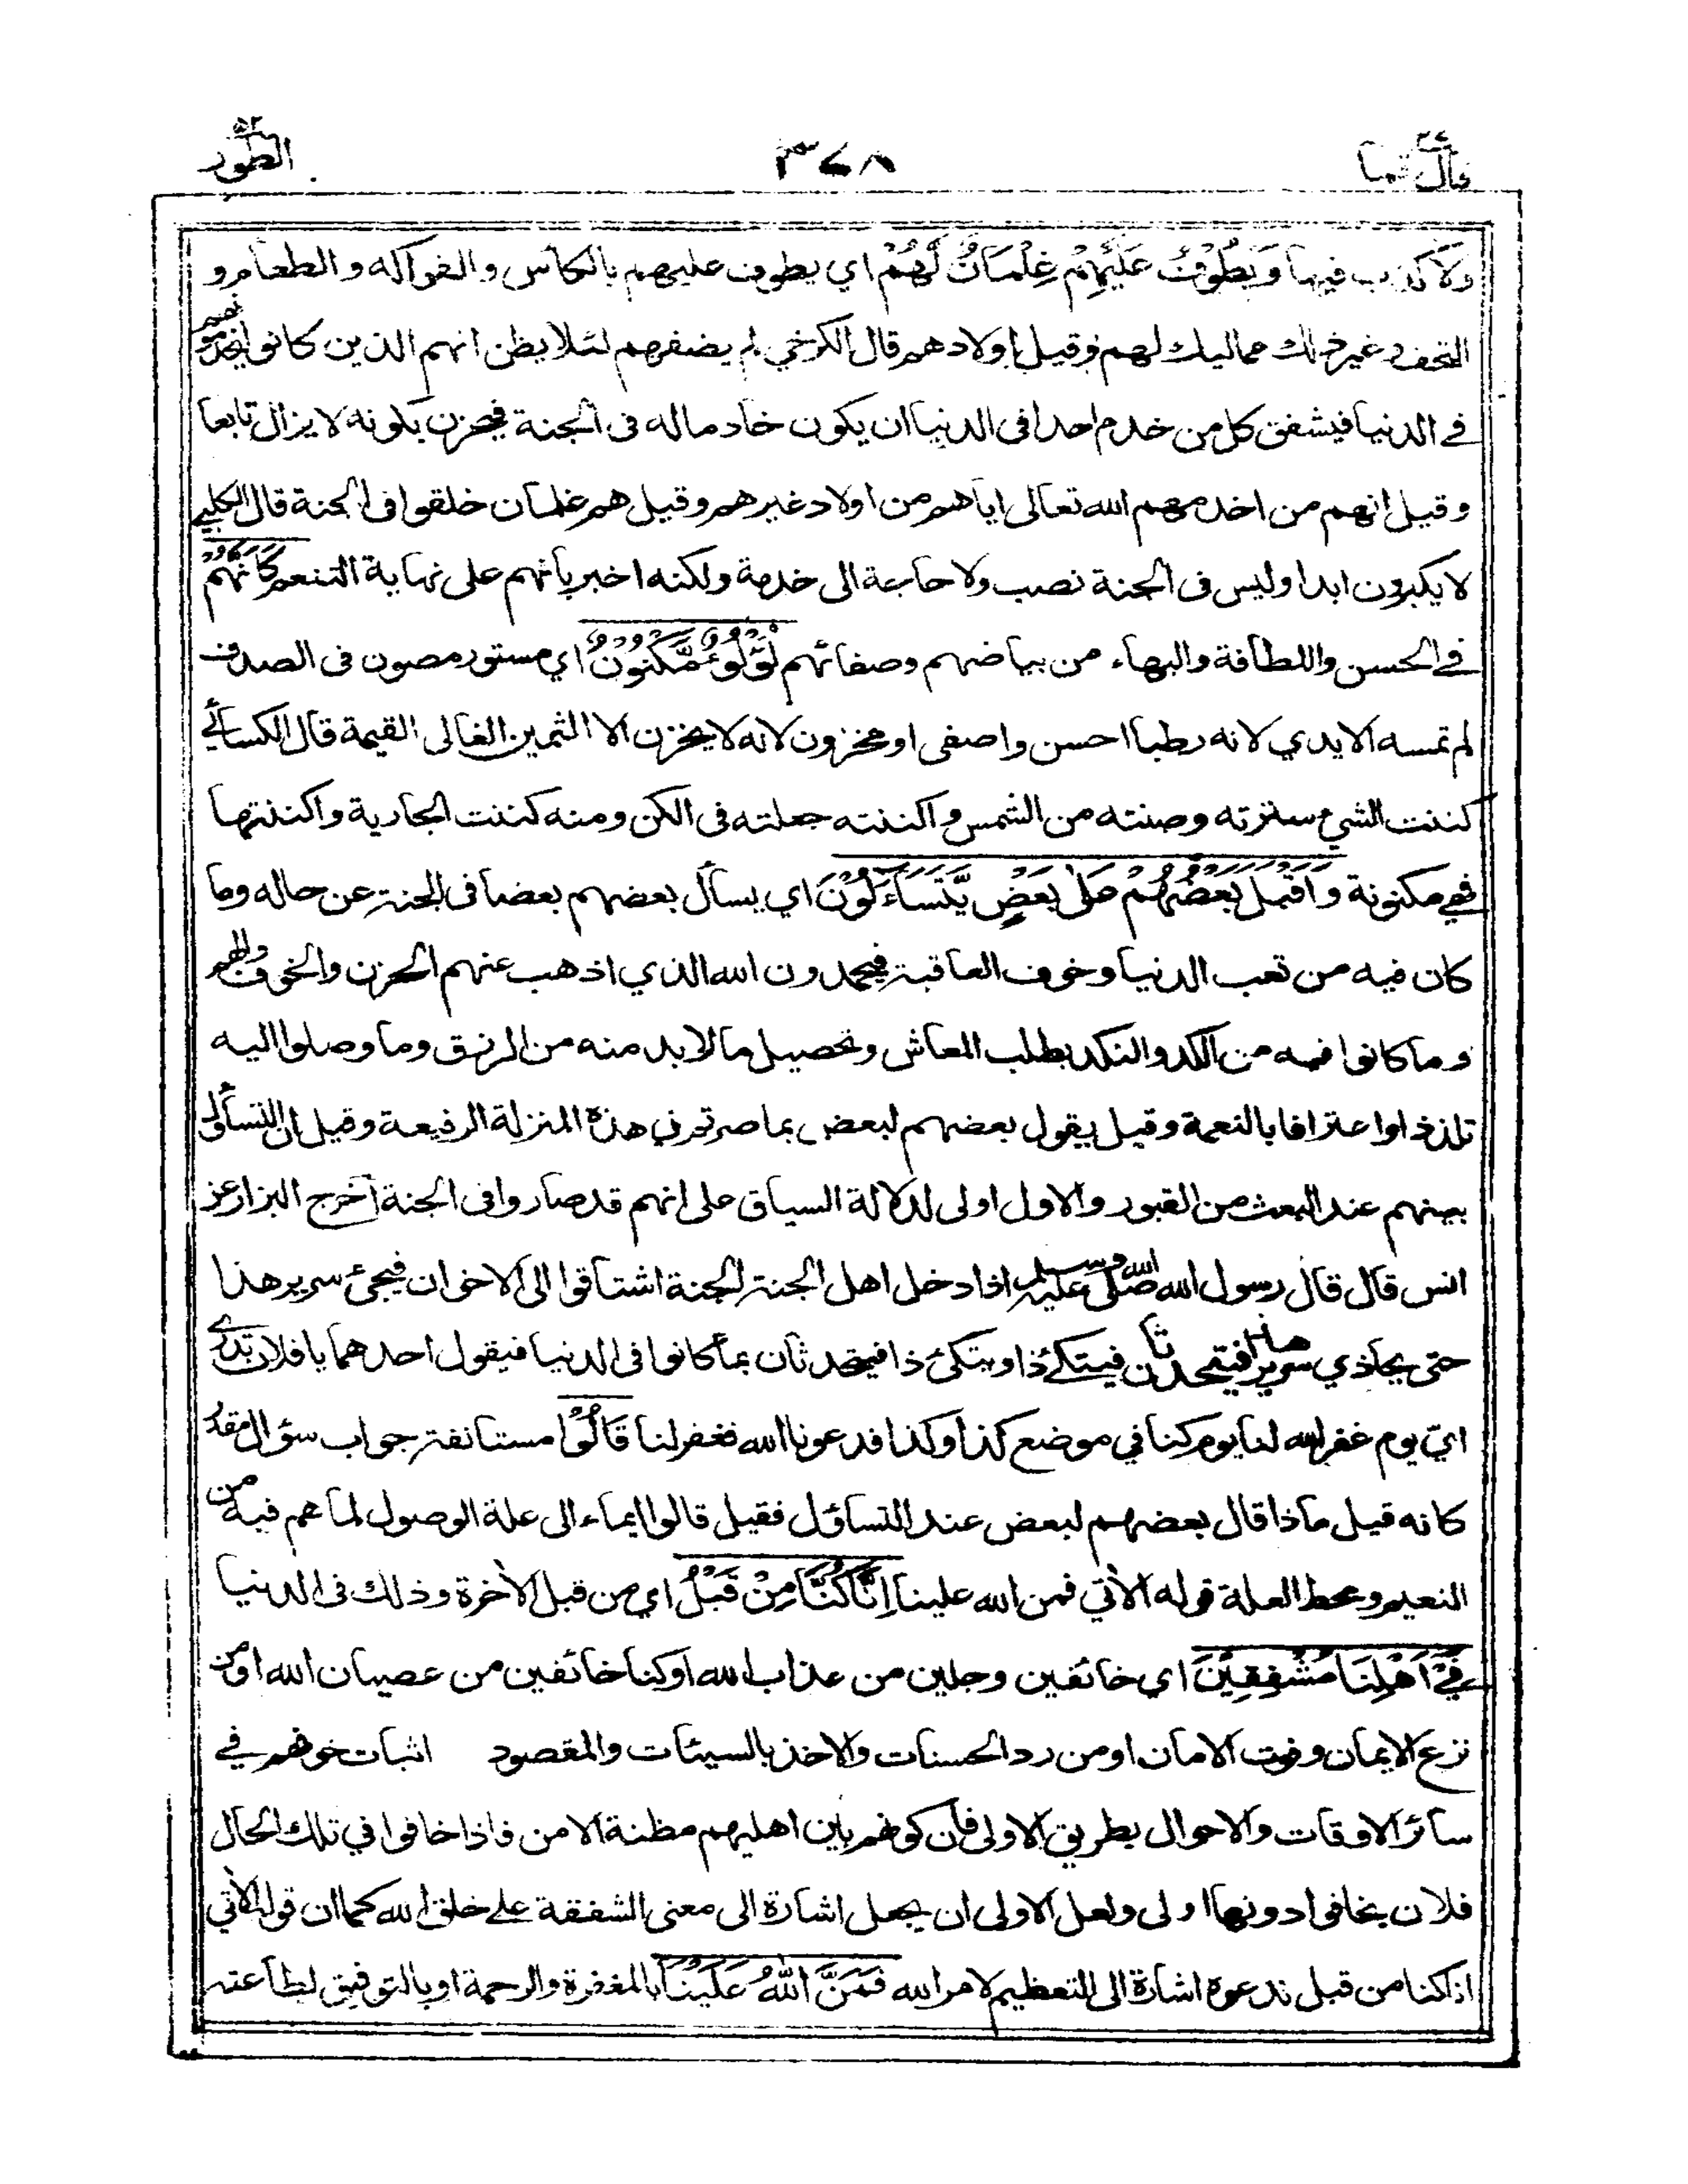 قال فما ٢٧
٣٧٨
الطور ٥٢
ولا كذب فيها وَيَطُوْفُ عَلَيْهِمْ غِلْمَانٌ لَّهُمْ اي يطوف عليهم بالكأس والفواكه والطعام و
التحف وغير ذلك مماليك لهم وقيل اولادهم قال الكرخي لم يضفهم لئلا يظن انهم الذين كانوا يخدمونهم
في الدنيا فيشفق كل من خدم احدا في الدنيا ان يكون خادما له في الجنة فيحزن بكونه لا يزال تابعا
وقيل انهم من اخدمهم الله تعالى اياهم من اولاد غيرهم وقيل هم غلمان خلقوا في الجنة قال الكلبي
لا يكبرون ابدا وليس في الجنة نصب ولا حاجة الى خدمة ولكنه اخبر بانهم على نهاية التنعم كَاَنَّهُمْ
في الحسن واللطافة والبهاء من بياضهم وصفائهم لُؤْلُؤٌ مَّكْنُوْنٌ اي مستور مصون في الصدف
لم تمسه الايدي لانه رطبا احسن واصفى او مخزون لانه لا يخزن الا الثمين الغالى القيمة قال الكسائي
كننت الشيء سترته وصنته من الشمس واكننته جعلته في الكن ومنه كننت الجارية واكننتها
فهي مكنونة وَاَقْبَلَ بَعْضُهُمْ عَلٰى بَعْضٍ يَّتَسَآءَلُوْنَ اي يسأل بعضهم بعضا في الجنة عن حاله وما
كان فيه من تعب الدنيا وخوف العاقبة فيحمدون الله الذي اذهب عنهم الحزن والخوف والهم
وما كانوا فيه من الكد والنكد بطلب المعاش وتحصيل ما لا بد منه من الرزق وما وصلوا اليه
تلذذا واعترافا بالنعمة وقيل يقول بعضهم لبعض بما صرتم في هذه المنزلة الرفيعة وقيل ان التساؤل
بينهم عند البعث من القبور والاول اولى لدلالة السياق على انهم قد صاروا في الجنة أخرج البزار عن
انس قال قال رسول الله صلى الله عليه وسلم اذا دخل اهل الجنة الجنة اشتاقوا الى الاخوان فيجيء سرير هذا
حتى يحاذي سرير هذا فيتحدثان فيتكئ ذا ويتكئ ذا فيتحدثان بما كانوا في الدنيا فيقول احدهما يا فلان تدري
اي يوم غفر الله لنا يوم كنا في موضع كذا وكذا فدعونا الله فغفر لنا قَالُوْا مستانفة جواب سؤال مقدر
كانه قيل ماذا قال بعضهم لبعض عند التساؤل فقيل قالوا ايماء الى علة الوصول لما هم فيه من
النعيم ومحط العلة قوله الآتي فمن الله علينا اِنَّا كُنَّا مِنْ قَبْلُ اي من قبل الآخرة وذلك في الدنيا
فِيْٓ اَهْلِنَا مُشْفِقِيْنَ اي خائفين وجلين من عذاب الله او كنا خائفين من عصيان الله او من
نزع الايمان وفوت الامان او من رد الحسنات والاخذ بالسيئات والمقصود اثبات خوفهم في
سائر الاوقات والاحوال بطريق الاولى فان كونهم بين اهليهم مظنة الامن فاذا خافوا في تلك الحال
فلان يخافوا دونها اولى ولعل الاولى ان يجعل اشارة الى معنى الشفقة على خلق الله كما ان قوله الآتي
انا كنا من قبل ندعوه اشارة الى التعظيم لامر الله فَمَنَّ اللّٰهُ عَلَيْنَا بالمغفرة والرحمة او بالتوفيق لطاعته